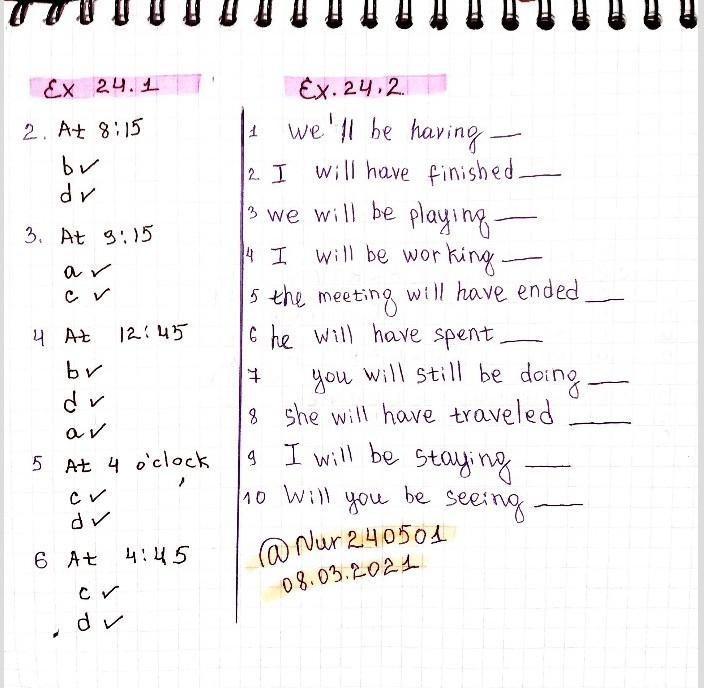 Ex 24.1
2. At 8:15
b✓
d✓
3. At 9:15
a ✓
c ✓
4 At 12:45
b✓
d✓
a✓
5 At 4 o'clock
c✓
d✓
6 At 4:45
c✓
d✓
Ex. 24.2.
1 we'll be having __
2. I will have finished __
3 we will be playing __
4 I will be working __
5 the meeting will have ended __
6 he will have spent __
7 you will still be doing __
8 she will have traveled __
9 I will be staying __
10 Will you be seeing __
@Nur240501
08.03.2021